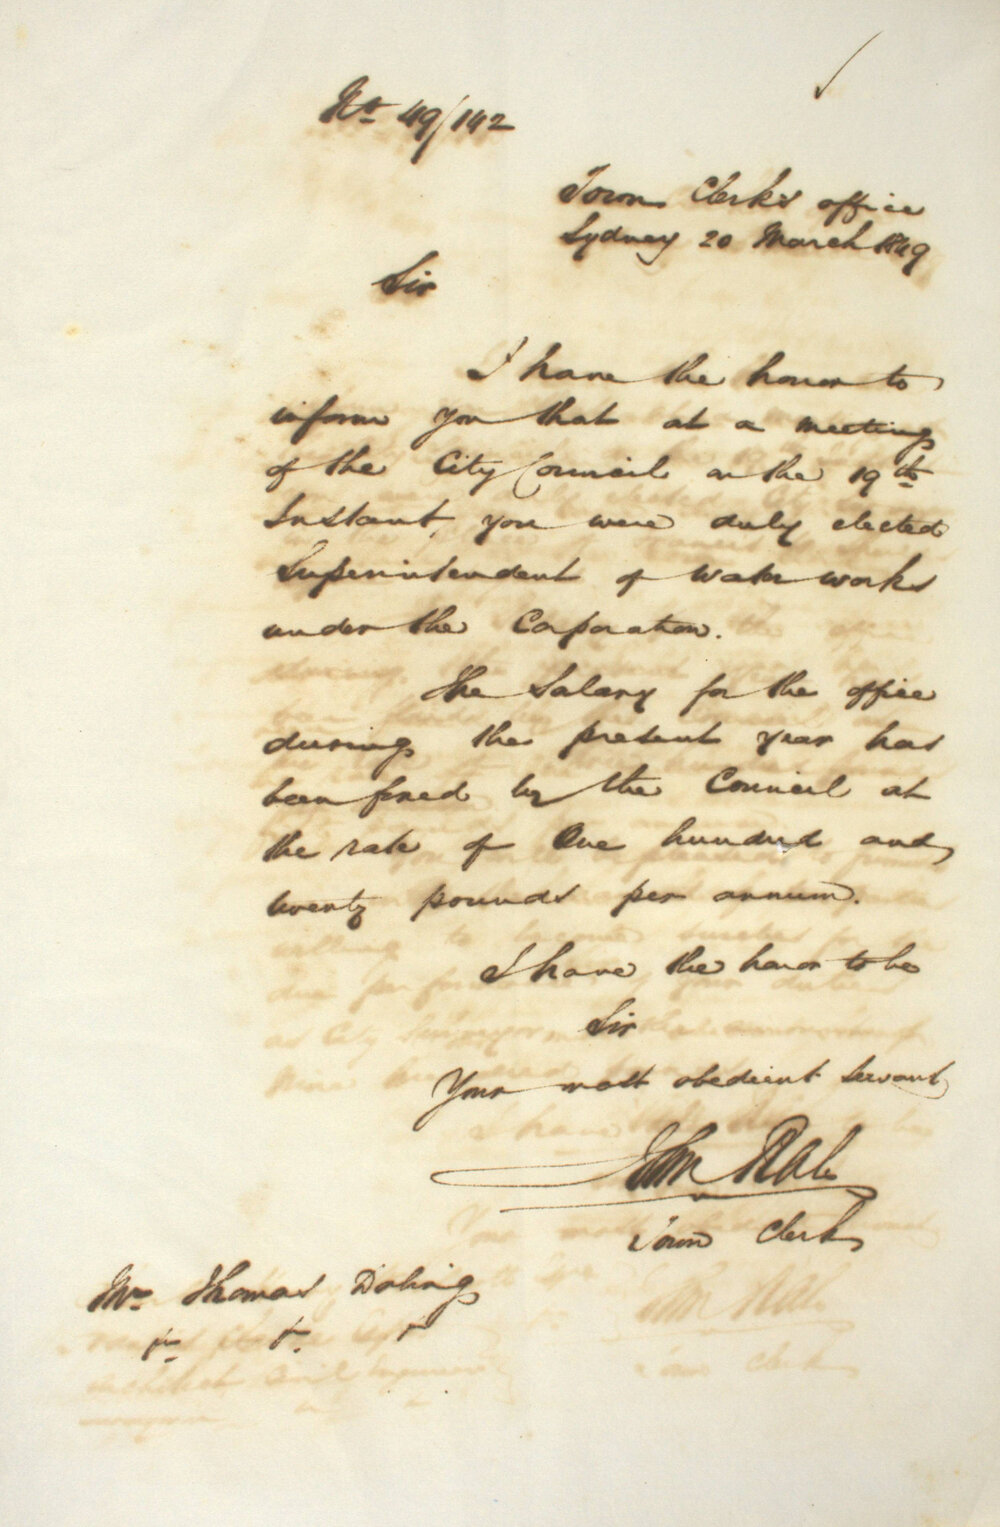 No 49/142
Town Clerk's office
Sydney 20 March 1849
Sir
I have the honor to
inform you that at a meeting
of the City Council on the 19th
Instant, you were duly elected
Superintendent of Water works
under the Corporation.
The Salary for the office
during the present year has
been fixed by the Council at
the rate of One hundred and
twenty pounds per annum.
I have the honor to be
Sir
Your most obedient Servant
John Rae
Town Clerk
Mr Thomas